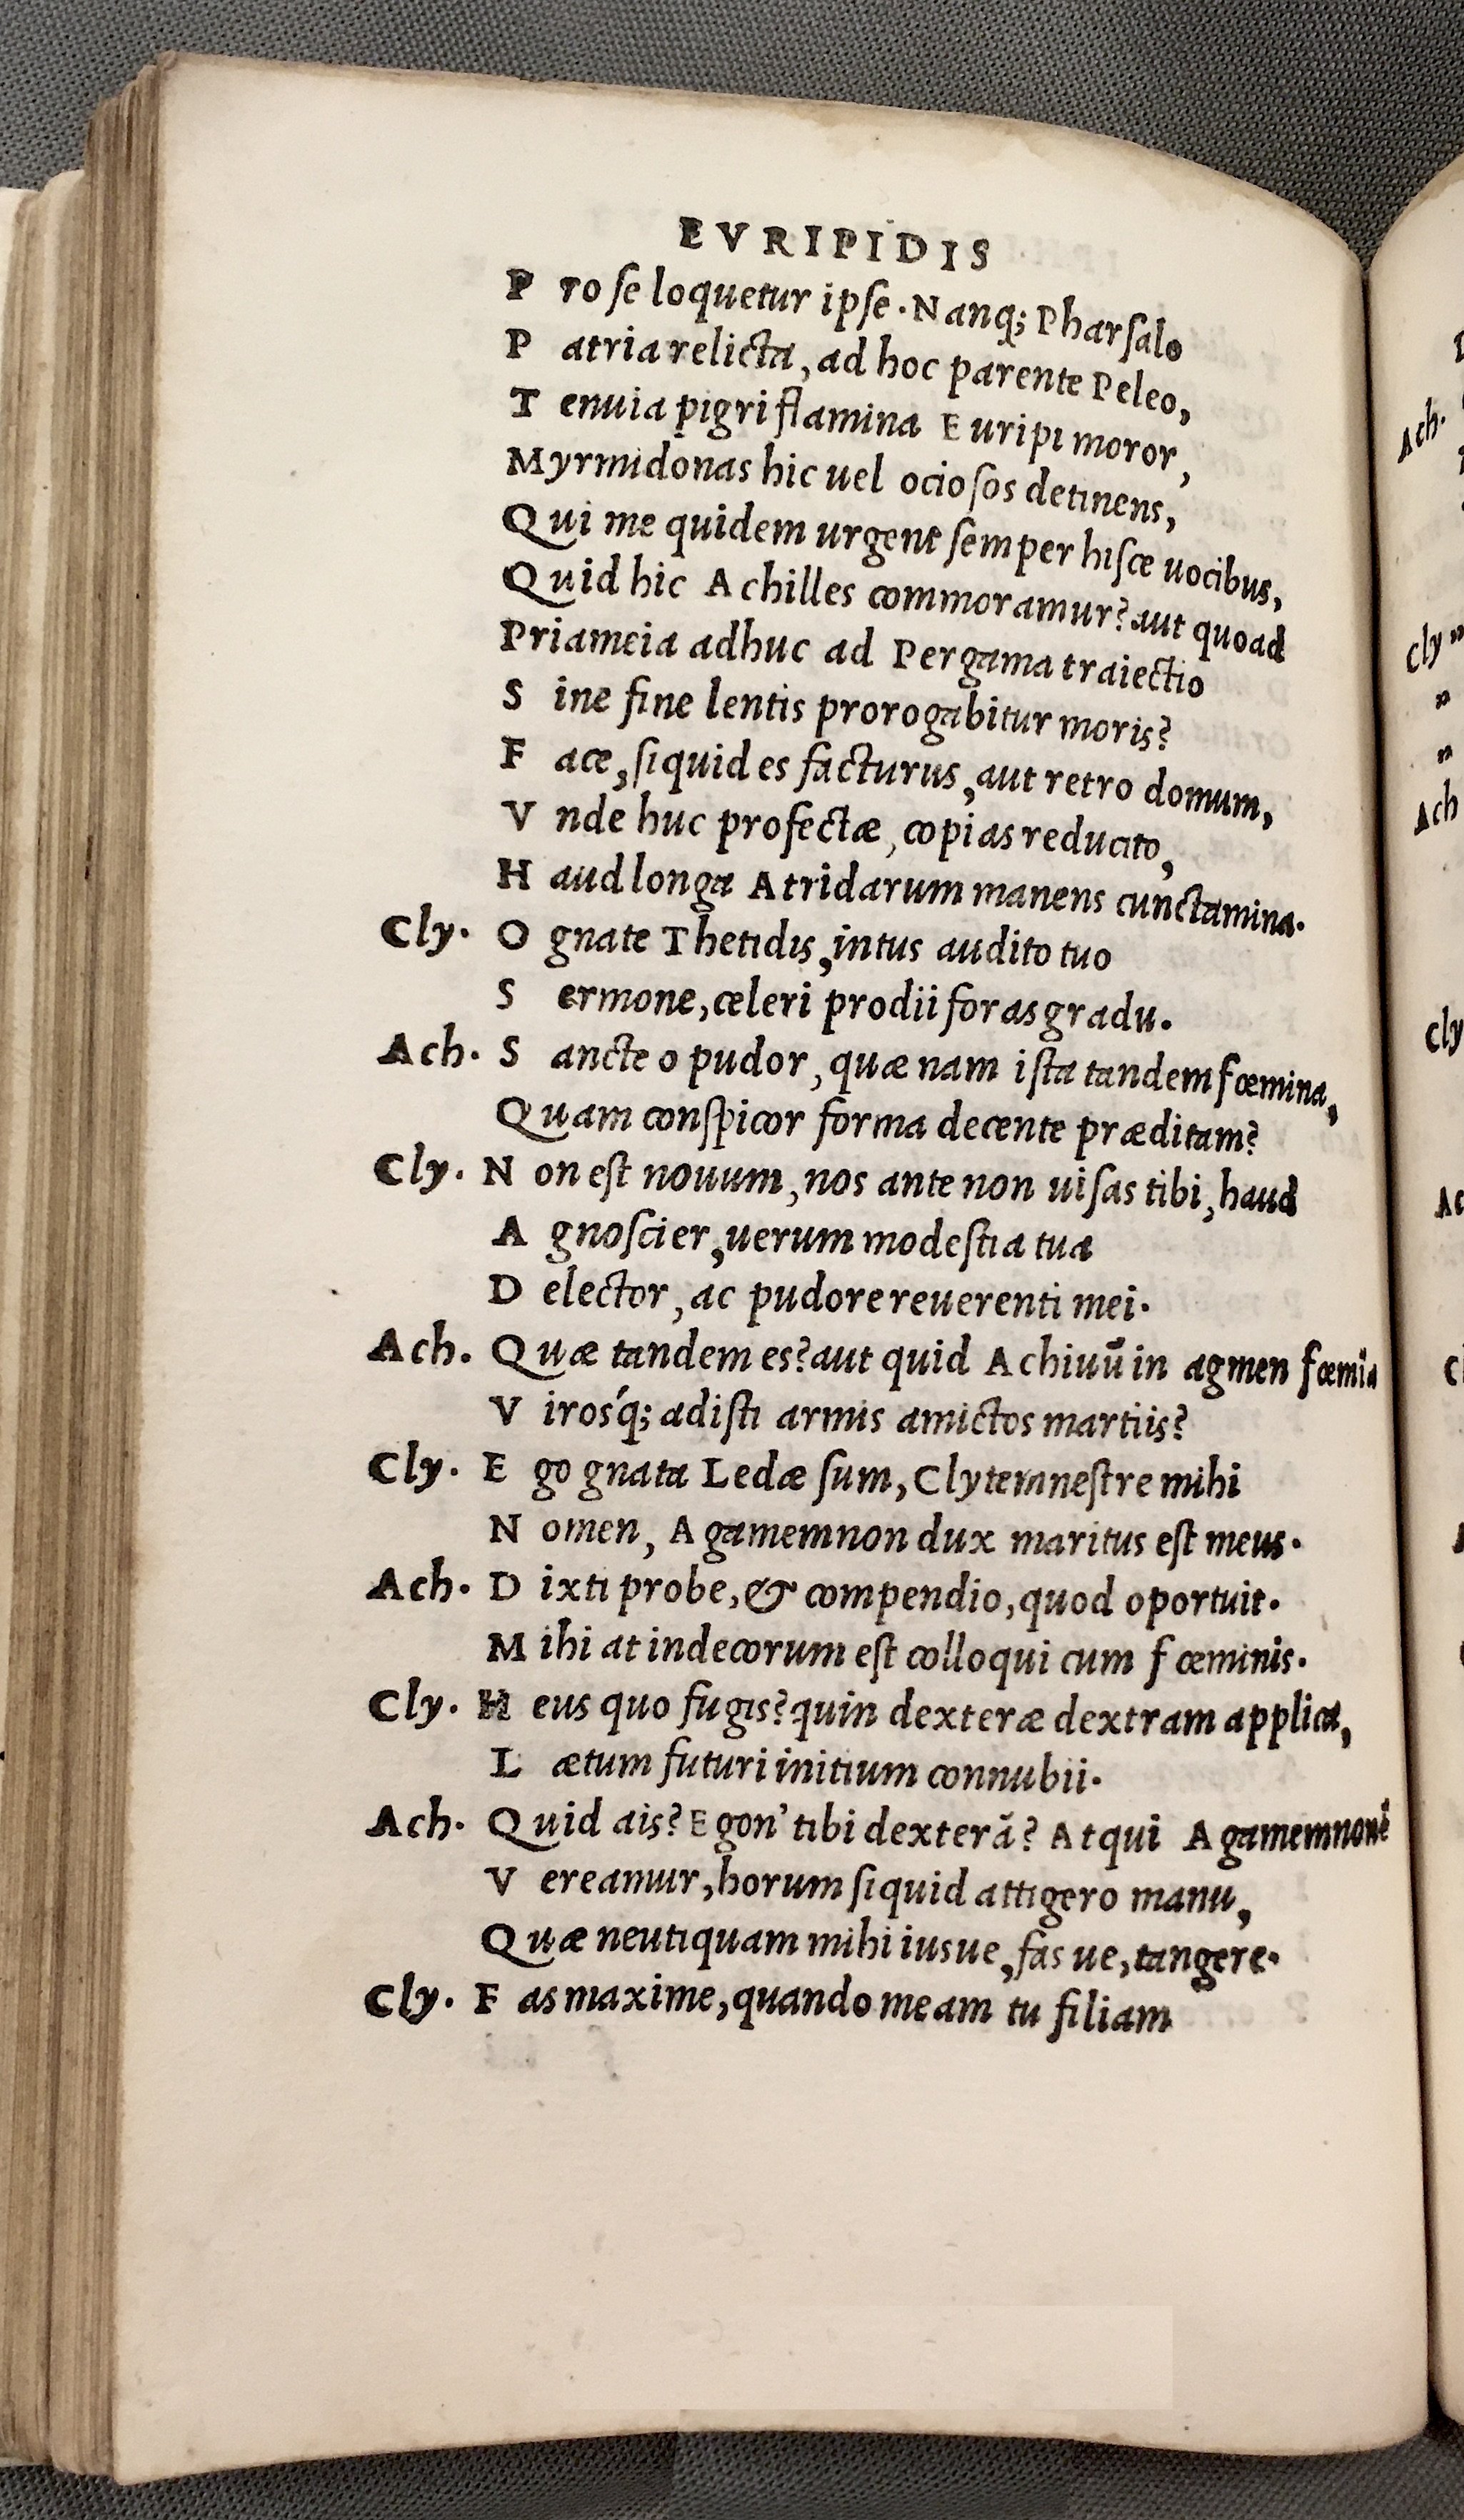 EVRIPIDIS
P ro ſe loquetur ipſe. Nanq; Pharſalo
P atria relicta, ad hoc parente Peleo,
T enuia pigri flamina Euripi moror,
Myrmidonas hic uel ocioſos detinens,
Qui me quidem urgent ſemper hiſce uocibus,
Quid hic Achilles commoramur? aut quoad
Priameia adhuc ad Pergama traiectio
S ine fine lentis prorogabitur moris?
F ace, ſiquid es facturus, aut retro domum,
V nde huc profectæ, copias reducito,
H aud longa Atridarum manens cunctamina.
Cly. O gnate Thetidis, intus audito tuo
S ermone, celeri prodii foras gradu.
Ach. S ancte o pudor, quæ nam iſta tandem fœmina,
Quam conſpicor forma decente præditam?
Cly. N on eſt nouum, nos ante non uiſas tibi, haud
A gnoſcier, uerum modeſtia tua
D elector, ac pudore reuerenti mei.
Ach. Quæ tandem es? aut quid Achiuū in agmen fœmīa
V irosq́; adiſti armis amictos martiis?
Cly. E go gnata Ledæ ſum, Clytemneſtre mihi
N omen, Agamemnon dux maritus eſt meus.
Ach. D ixti probe, & compendio, quod oportuit.
M ihi at indecorum eſt colloqui cum fœminis.
Cly. H eus quo fugis? quin dexteræ dextram applica,
L ætum futuri initium connubii.
Ach. Quid ais? Egon' tibi dexterā? Atqui Agamemnonē
V ereamur, horum ſiquid attigero manu,
Quæ neutiquam mihi iusue, fas ue, tangere.
Cly. F as maxime, quando meam tu filiam
Ach.
Cly
Ach
Cly